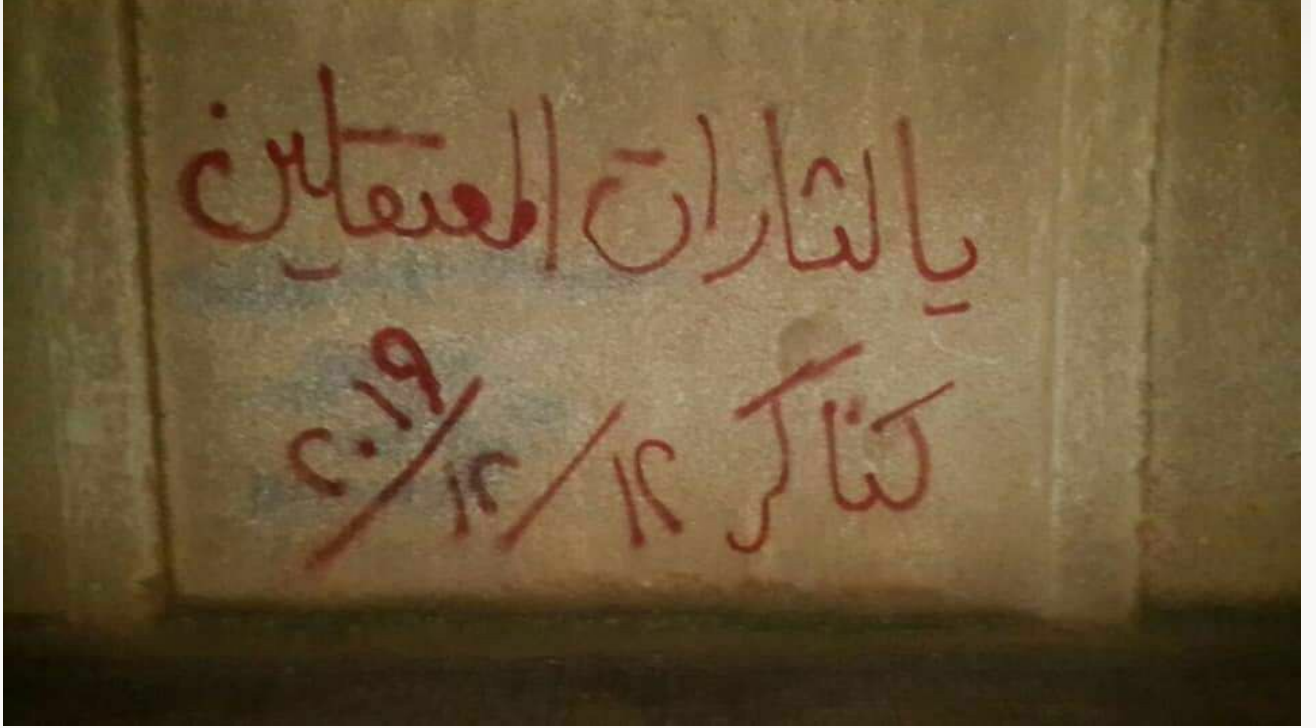 يالثارات المعتقلين
كناكر ١٢/١٢/٢٠١٩